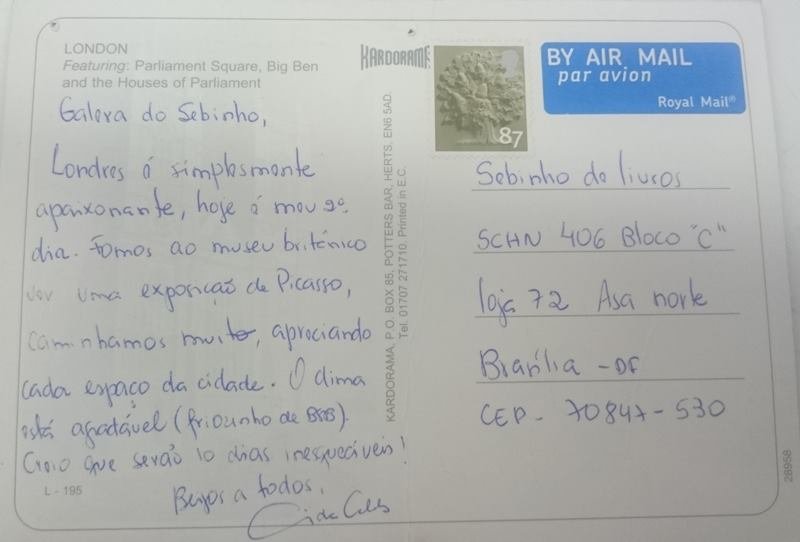 LONDON
Featuring: Parliament Square, Big Ben
and the Houses of Parliament
Galera do Sebinho,
Londres é simplesmente
apaixonante, hoje é meu 2º
dia. Fomos ao museu britânico
ver uma exposição de Picasso,
caminhamos muito, apreciando
cada espaço da cidade. O clima
está agradável (friozinho de BSB).
Creio que serão 10 dias inesquecíveis!
Beijos a todos,
L - 195
KARDORAMA, P.O. BOX 85, POTTERS BAR, HERTS, EN6 5AD.
Tel. 01707 271710. Printed in E.C.
KARDORAMA
87
BY AIR MAIL
par avion
Royal Mail®
Sebinho de livros
SCHN 406 Bloco "C"
loja 72 Asa norte
Brasília - DF
CEP - 70847-530
28958